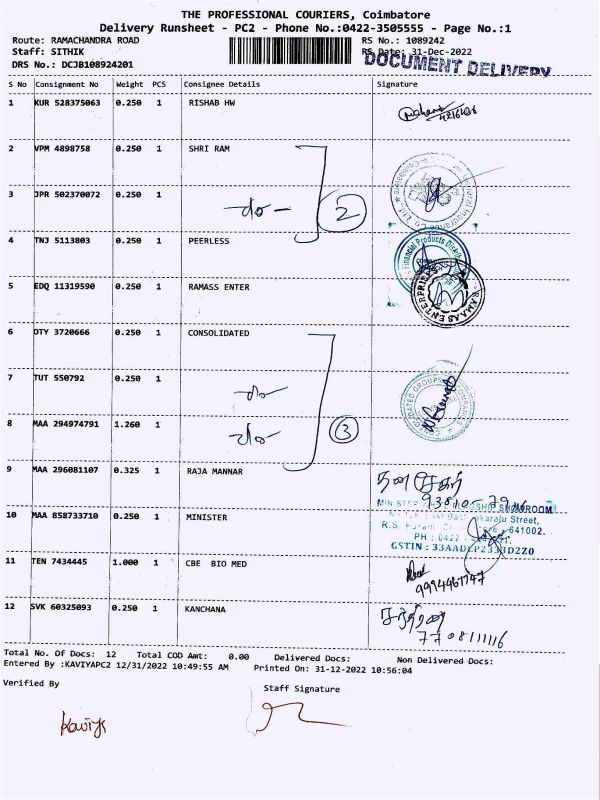 THE PROFESSIONAL COURIERS, Coimbatore
Delivery Runsheet - PC2 - Phone No.:0422-3505555 - Page No.:1
Route: RAMACHANDRA ROAD RS No.: 1089242
Staff: SITHIK RS Date: 31-Dec-2022
DOCUMENT DELIVERY
DRS No.: DCJB108924201
S No Consignment No Weight PCS Consignee Details Signature
1 KUR 528375063 0.250 1 RISHAB HW
2 VPM 4898758 0.250 1 SHRI RAM
3 JPR 502370072 0.250 1 -do- 2
4 TNJ 5113803 0.250 1 PEERLESS
Financial Products
5 EDQ 11319590 0.250 1 RAMASS ENTER
RAMAAS ENTERPRISES
6 DTY 3720666 0.250 1 CONSOLIDATED
7 TUT 550792 0.250 1 -do-
8 MAA 294974791 1.260 1 -do- 3
9 MAA 296081107 0.325 1 RAJA MANNAR
SHOWROOM
10 MAA 858733710 0.250 1 MINISTER
Street,
R.S. 641002.
PH : 0422
GSTIN : 33AADLP2333D2Z0
11 TEN 7434445 1.000 1 CBE BIO MED
9994467747
12 SVK 60325093 0.250 1 KANCHANA
7708111116
Total No. Of Docs: 12 Total COD Amt: 0.00 Delivered Docs: Non Delivered Docs:
Entered By :KAVIYAPC2 12/31/2022 10:49:55 AM Printed On: 31-12-2022 10:56:04
Verified By Staff Signature
Kaviya